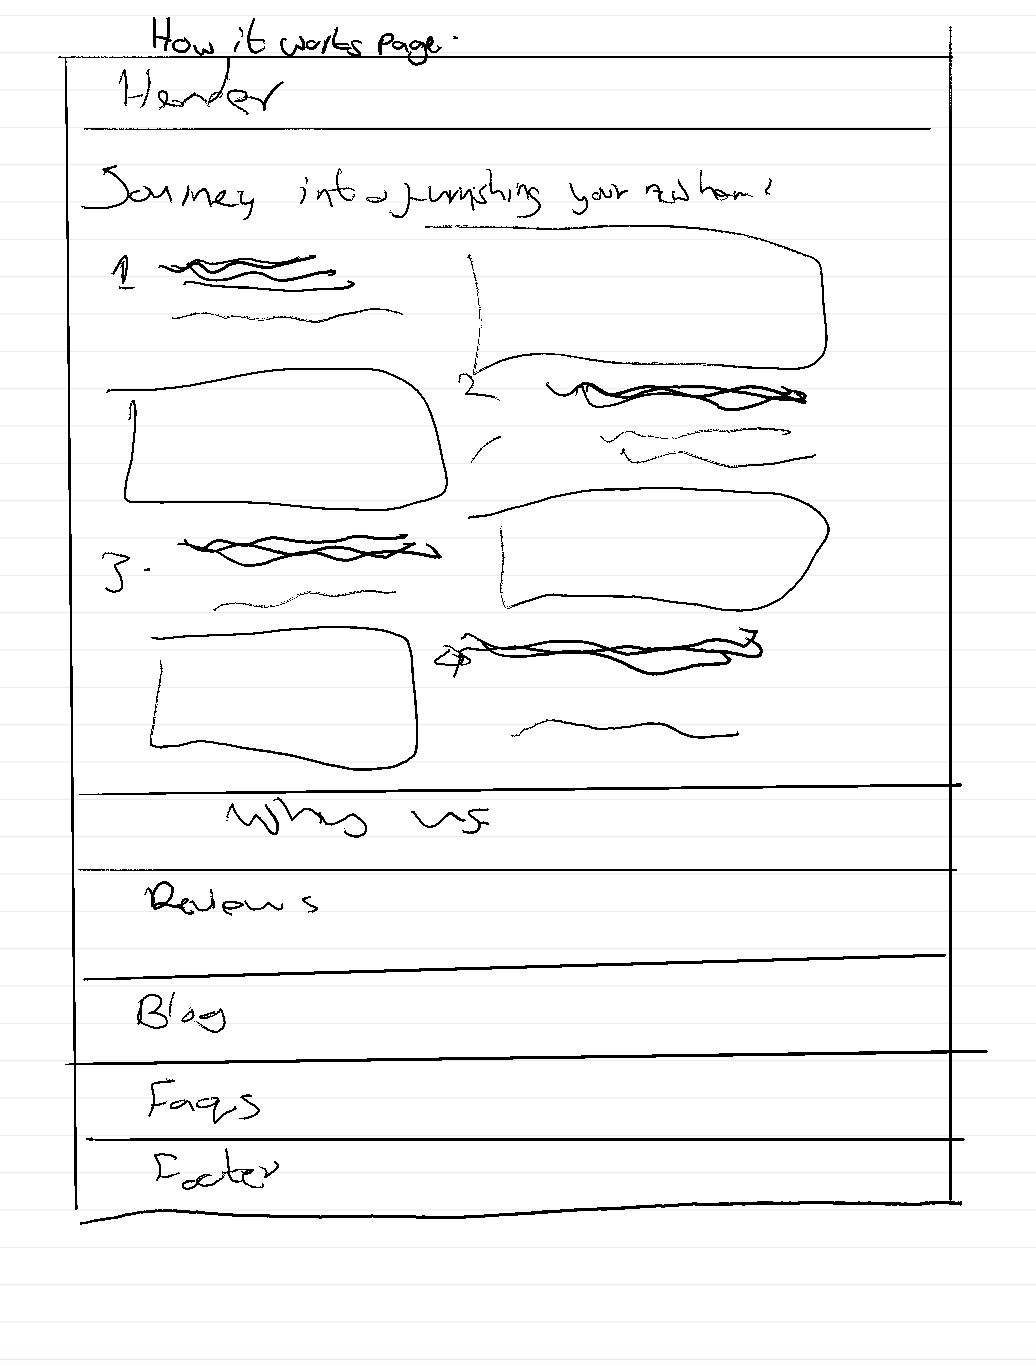 How it works page.
Header
Journey into furnishing your new home
1
2
3.
4
Why us
Reviews
Blog
Faqs
Footer